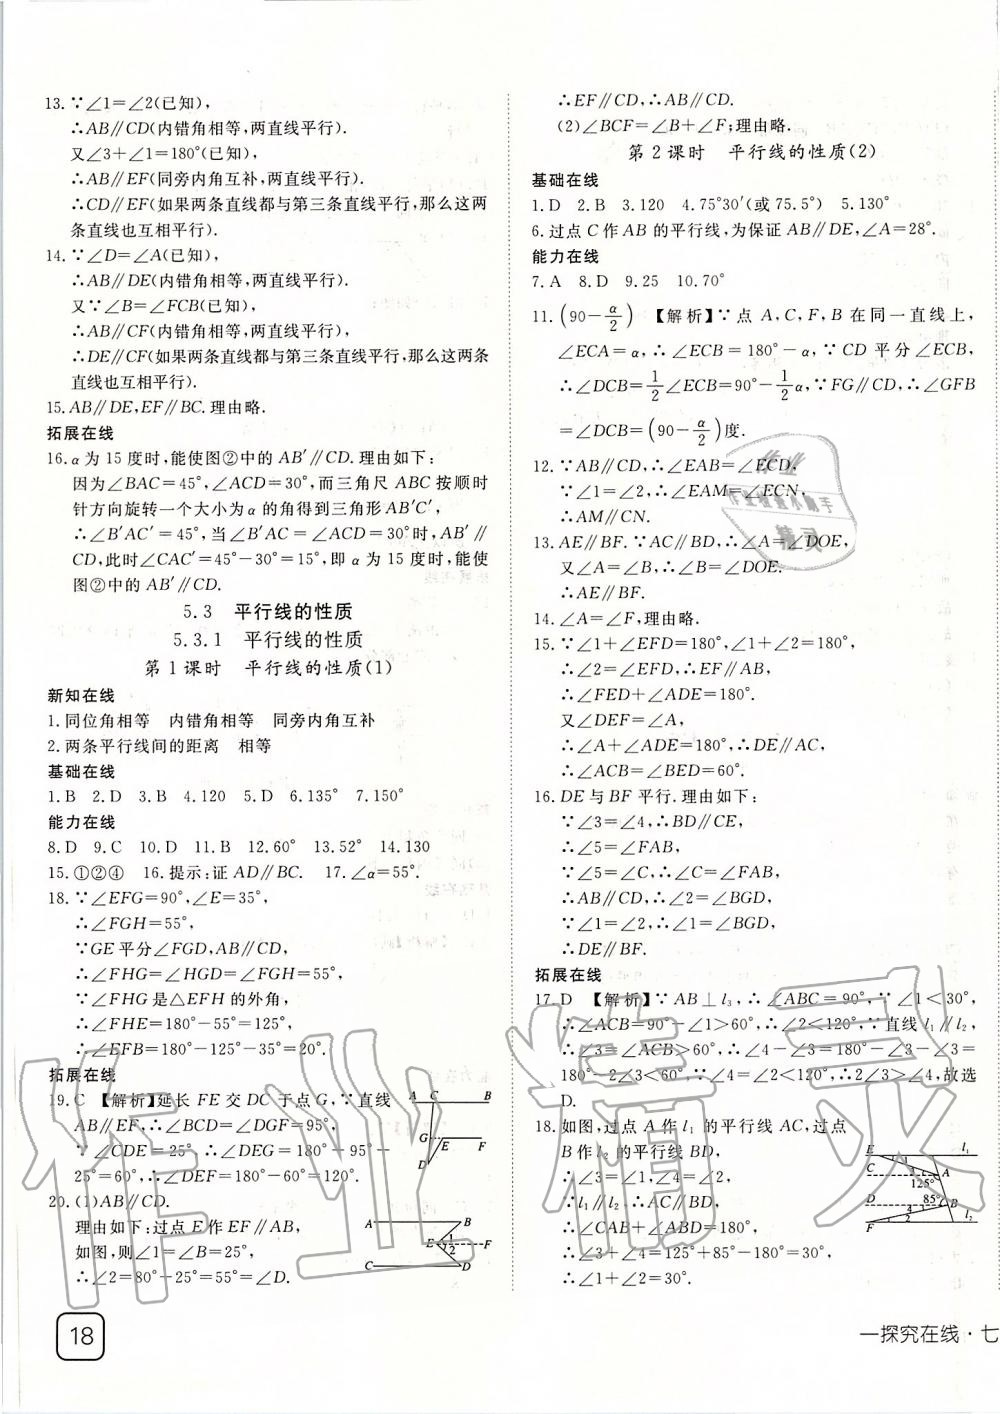 13.∵∠1=∠2(已知),
∴AB∥CD(内错角相等,两直线平行).
又∠3+∠1=180°(已知),
∴AB∥EF(同旁内角互补,两直线平行).
∴CD∥EF(如果两条直线都与第三条直线平行,那么这两
条直线也互相平行).
14.∵∠D=∠A(已知),
∴AB∥DE(内错角相等,两直线平行).
又∵∠B=∠FCB(已知),
∴AB∥CF(内错角相等,两直线平行).
∴DE∥CF(如果两条直线都与第三条直线平行,那么这两条
直线也互相平行).
15.AB∥DE,EF∥BC.理由略.
拓展在线
16.α为15度时,能使图②中的AB′∥CD.理由如下:
因为∠BAC=45°,∠ACD=30°,而三角尺ABC按顺时
针方向旋转一个大小为α的角得到三角形AB′C′,
∴∠B′AC′=45°,当∠B′AC=∠ACD=30°时,AB′∥
CD,此时∠CAC′=45°-30°=15°,即α为15度时,能使
图②中的AB′∥CD.
5.3 平行线的性质
5.3.1 平行线的性质
第1课时 平行线的性质(1)
新知在线
1.同位角相等 内错角相等 同旁内角互补
2.两条平行线间的距离 相等
基础在线
1.B 2.D 3.B 4.120 5.D 6.135° 7.150°
能力在线
8.D 9.C 10.D 11.B 12.60° 13.52° 14.130
15.①②④ 16.提示:证AD∥BC. 17.∠α=55°.
18.∵∠EFG=90°,∠E=35°,
∴∠FGH=55°,
∵GE平分∠FGD,AB∥CD,
∴∠FHG=∠HGD=∠FGH=55°,
∵∠FHG是△EFH的外角,
∴∠FHE=180°-55°=125°,
∴∠EFB=180°-125°-35°=20°.
拓展在线
19.C 【解析】延长FE交DC于点G,∵直线
AB∥EF,∴∠BCD=∠DGF=95°,
∵∠CDE=25°,∴∠DEG=180°-95°-
25°=60°,∴∠DEF=180°-60°=120°.
A C B
G E F
D
20.(1)AB∥CD.
理由如下:过点E作EF∥AB,
如图,则∠1=∠B=25°,
∴∠2=80°-25°=55°=∠D.
A B
E 1 2 F
C D
18
∴EF∥CD,∴AB∥CD.
(2)∠BCF=∠B+∠F;理由略.
第2课时 平行线的性质(2)
基础在线
1.D 2.B 3.120 4.75°30′(或75.5°) 5.130°
6.过点C作AB的平行线,为保证AB∥DE,∠A=28°.
能力在线
7.A 8.D 9.25 10.70°
11.(90-α/2) 【解析】∵点A,C,F,B在同一直线上,
∠ECA=α,∴∠ECB=180°-α,∵CD平分∠ECB,
∴∠DCB=1/2∠ECB=90°-1/2α,∵FG∥CD,∴∠GFB
=∠DCB=(90-α/2)度.
12.∵AB∥CD,∴∠EAB=∠ECD,
∵∠1=∠2,∴∠EAM=∠ECN,
∴AM∥CN.
13.AE∥BF.∵AC∥BD,∴∠A=∠DOE,
又∠A=∠B,∴∠B=∠DOE.
∴AE∥BF.
14.∠A=∠F,理由略.
15.∵∠1+∠EFD=180°,∠1+∠2=180°,
∴∠2=∠EFD,∴EF∥AB,
∴∠FED+∠ADE=180°.
又∠DEF=∠A,
∴∠A+∠ADE=180°,∴DE∥AC,
∴∠ACB=∠BED=60°.
16.DE与BF平行.理由如下:
∵∠3=∠4,∴BD∥CE,
∴∠5=∠FAB,
∵∠5=∠C,∴∠C=∠FAB,
∴AB∥CD,∴∠2=∠BGD,
∵∠1=∠2,∴∠1=∠BGD,
∴DE∥BF.
拓展在线
17.D 【解析】∵AB⊥l₃,∴∠ABC=90°,∵∠1<30°,
∴∠ACB=90°-∠1>60°,∴∠2<120°,∵直线l₁∥l₂,
∴∠3=∠ACB>60°,∴∠4-∠3=180°-∠3-∠3=
180°-2∠3<60°,∠2<120°,∴2∠3>∠2,故选
D.
18.如图,过点A作l₁的平行线AC,过点
B作l₂的平行线BD,
∵l₁∥l₂,∴AC∥BD,
∴∠CAB+∠ABD=180°,
∴∠3+∠4=125°+85°-180°=30°,
∴∠1+∠2=30°.
E l₁
C 1 3 A
125°
D 85° 4 B
F 2 l₂
一探究在线·七
作业
作业检查小助手
精灵
作业精灵